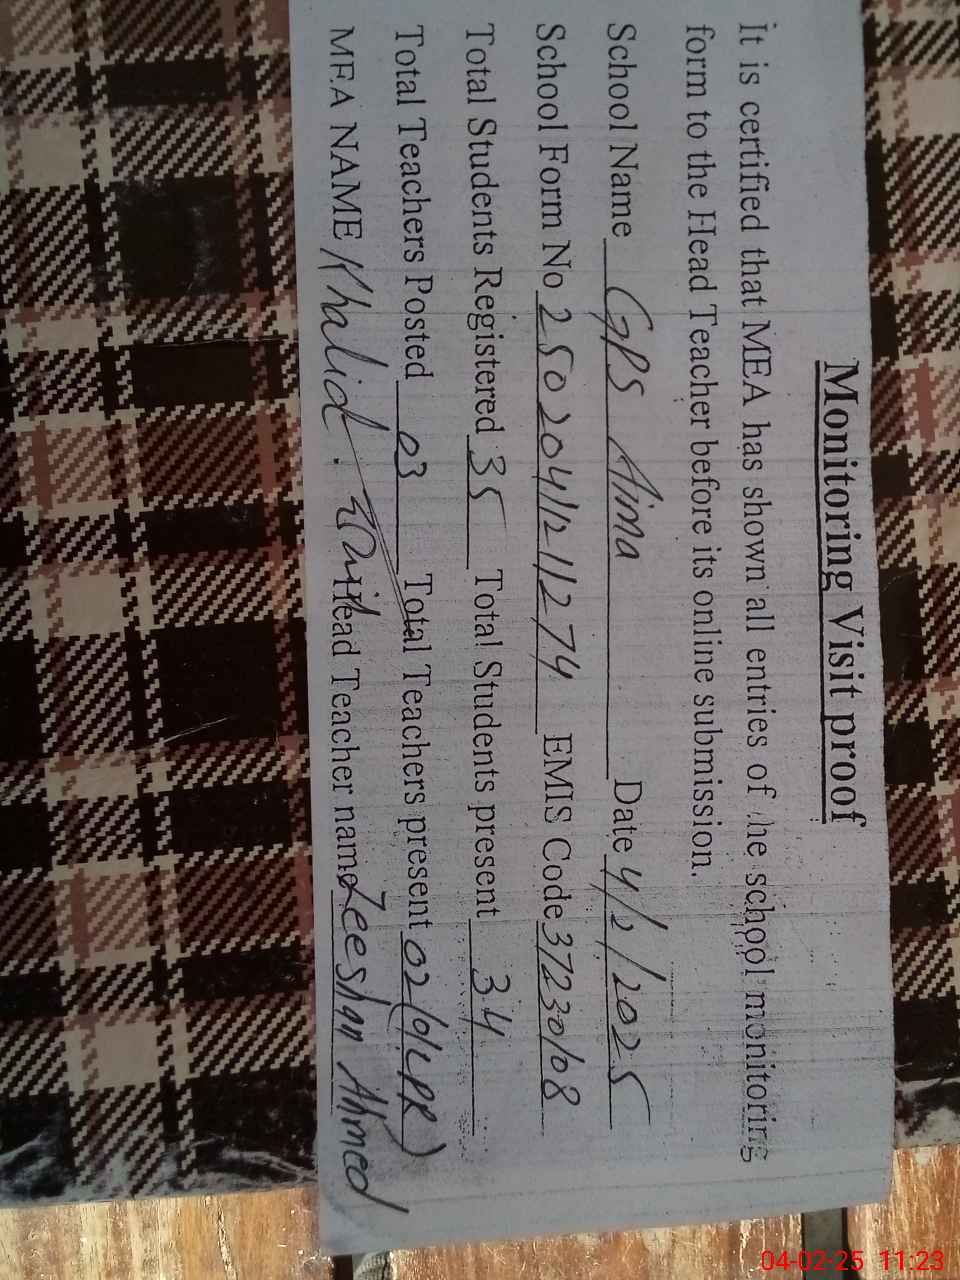 Monitoring Visit proof
It is certified that MEA has shown all entries of the school monitoring
form to the Head Teacher before its online submission.
School Name GPS Aima Date 4/2/2025
School Form No 25020411211274 EMIS Code 37230108
Total Students Registered 35 Total Students present 34
Total Teachers Posted 03 Total Teachers present 02
MEA NAME Khalid. Head Teacher name Zeeshan Ahmed
04-02-25 11:23